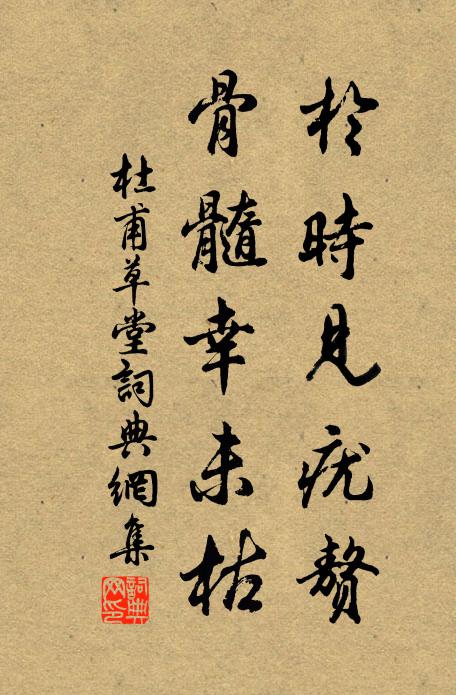 於時見疣贅
骨髓幸未枯
杜甫草堂詞典網集
詞典網印